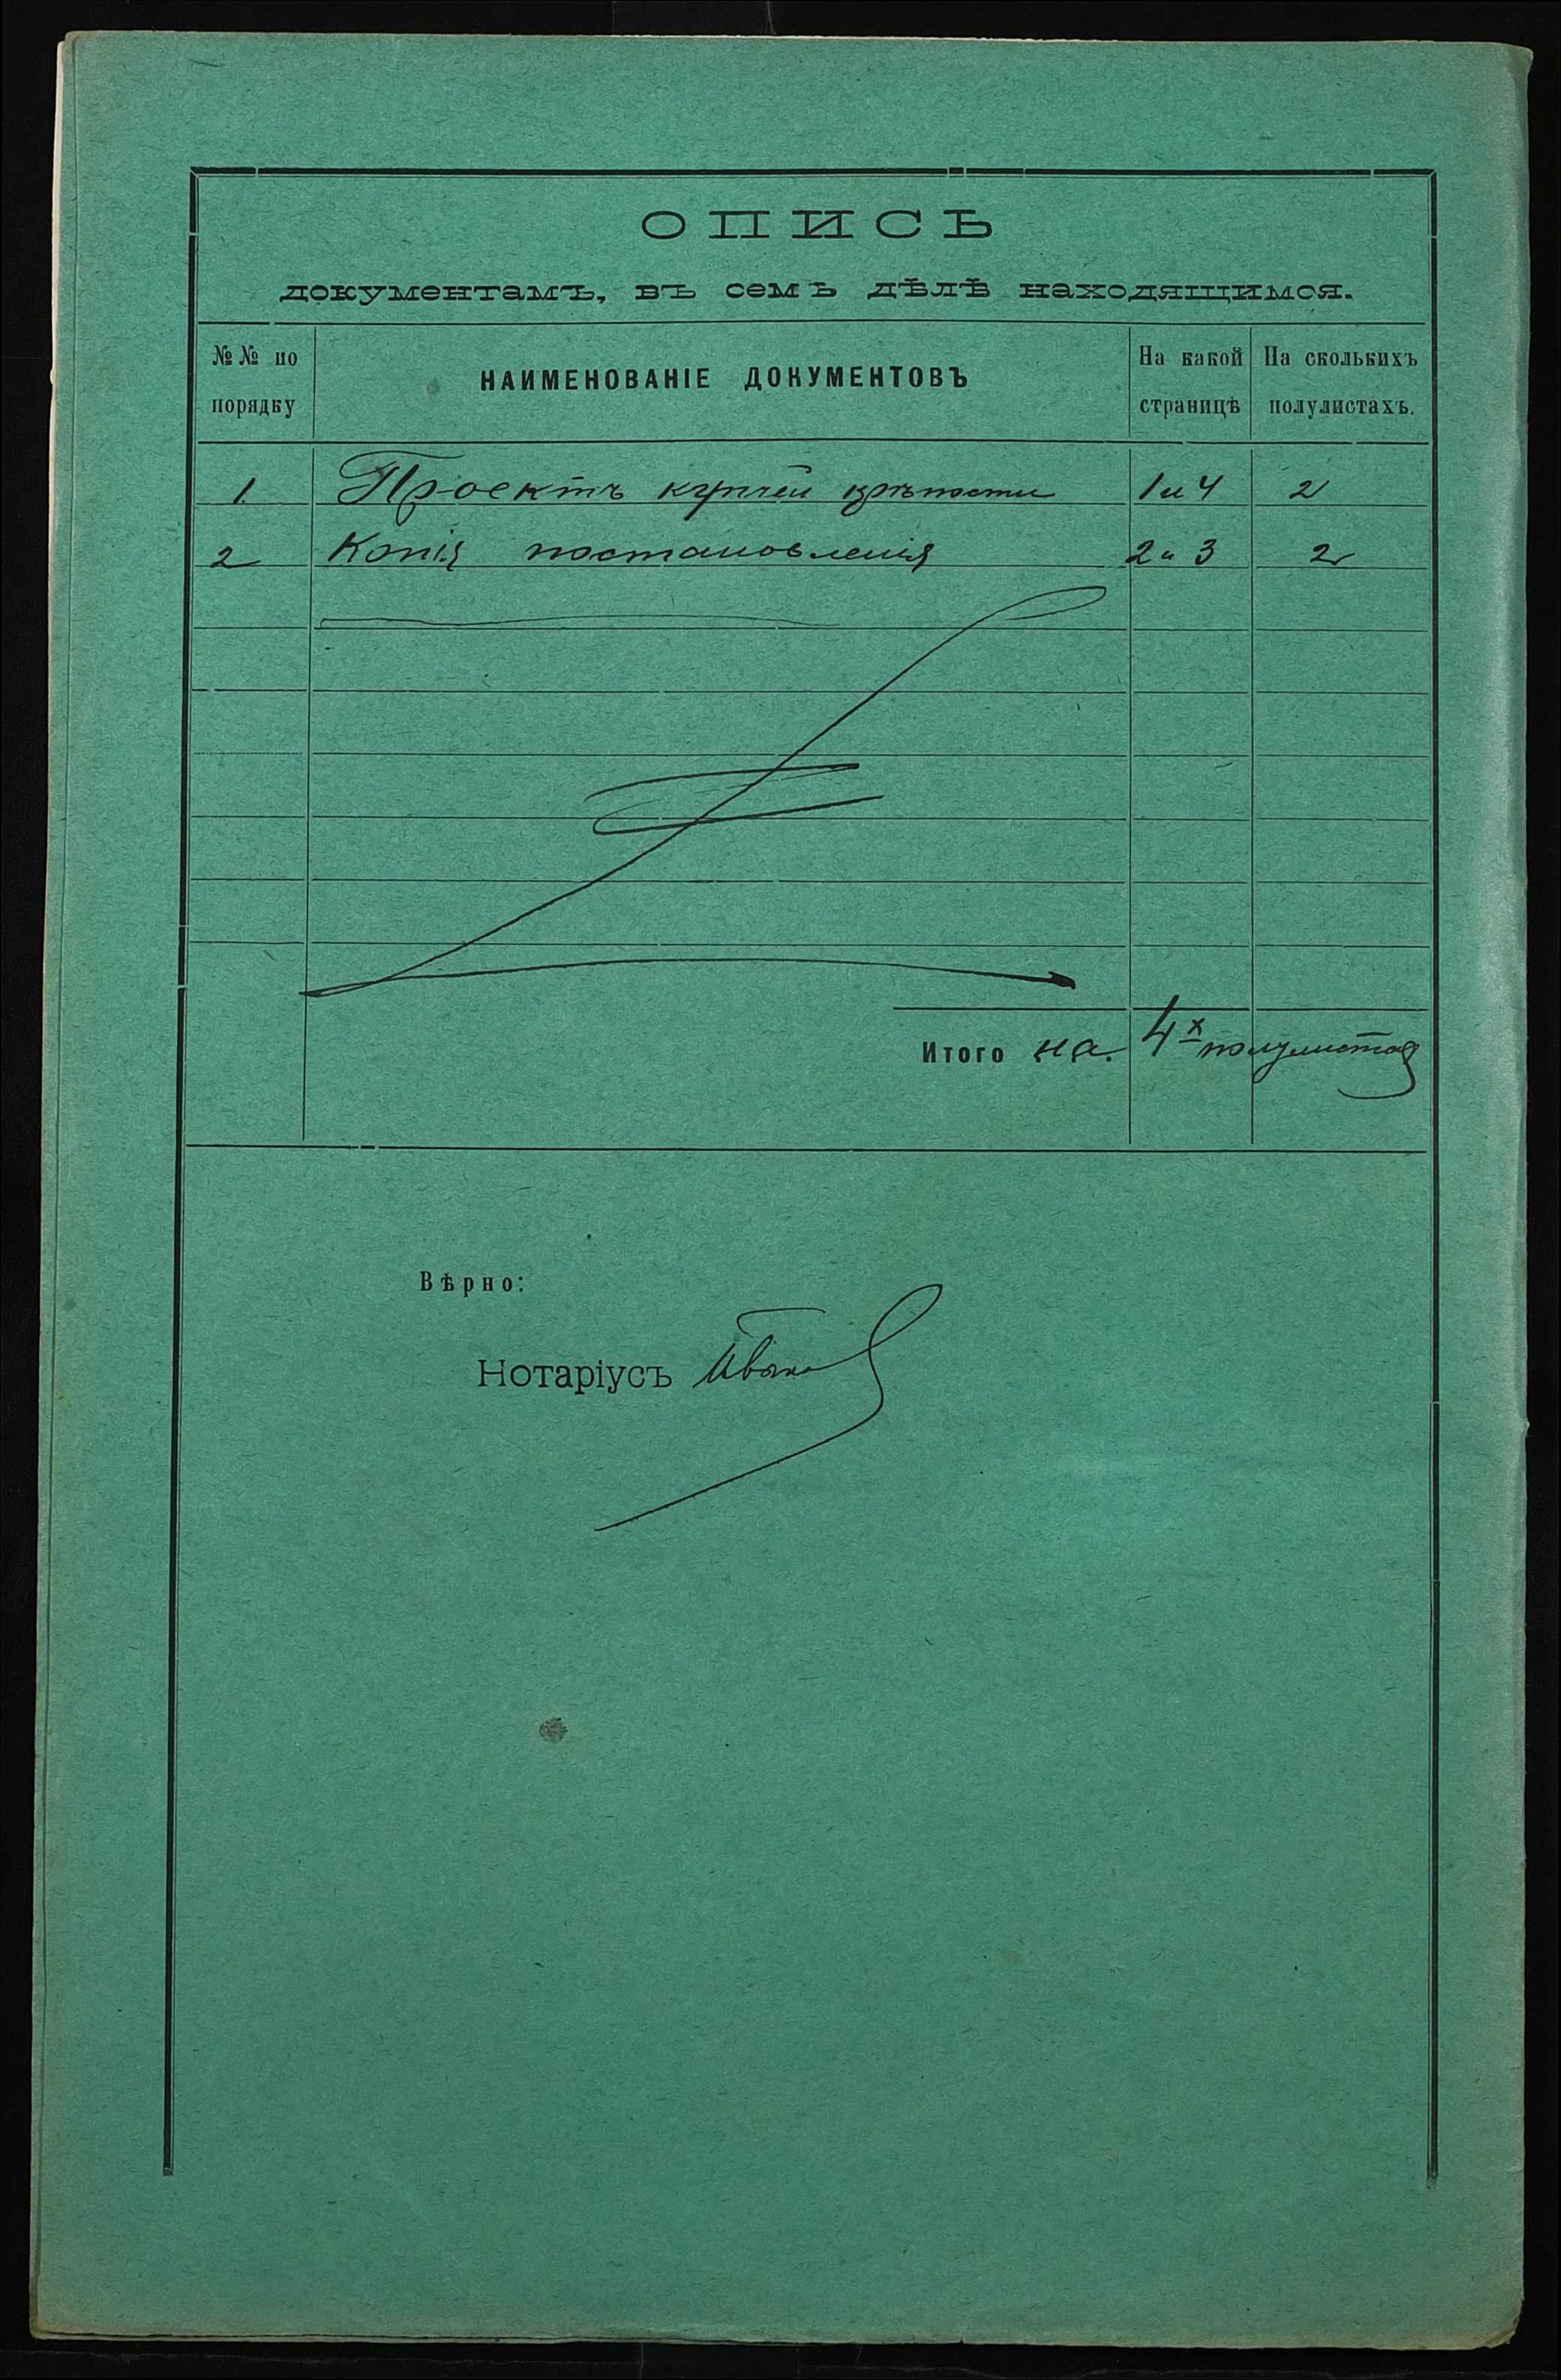 ОПИСЬ
документамъ, въ семъ дѣлѣ находящимся.
№№ по порядку
НАИМЕНОВАНІЕ ДОКУМЕНТОВЪ
На какой страницѣ
На сколькихъ полулистахъ.
1. Проектъ купчей крѣпости 1 и 4 2
2 Копія постановленія 2 и 3 2
Итого на 4х полулистах
Вѣрно:
Нотаріусъ